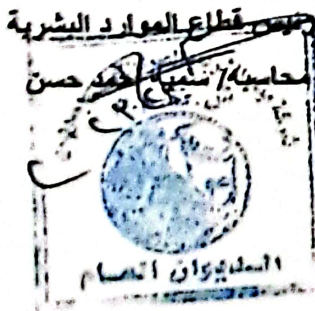 رئيس قطاع الموارد البشرية
محاسبة/ أحمد حسن
الديوان العام